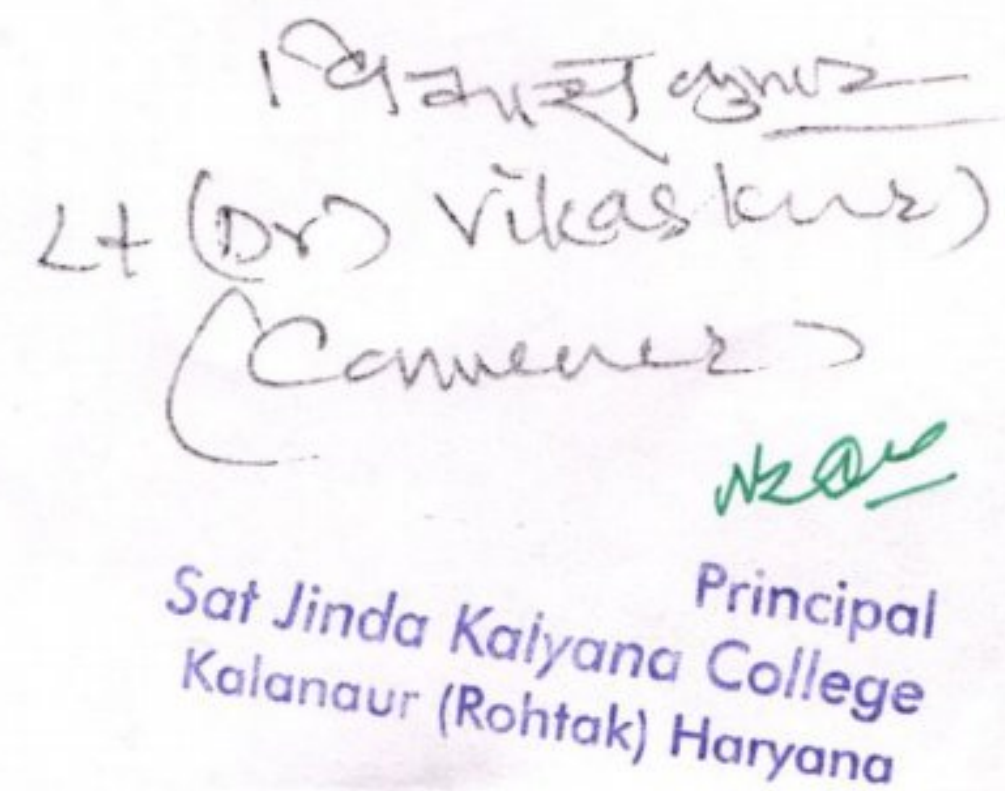 विकास कुमार
Lt (Dr) Vikas kumar)
(Convener)
Principal
Sat Jinda Kalyana College
Kalanaur (Rohtak) Haryana